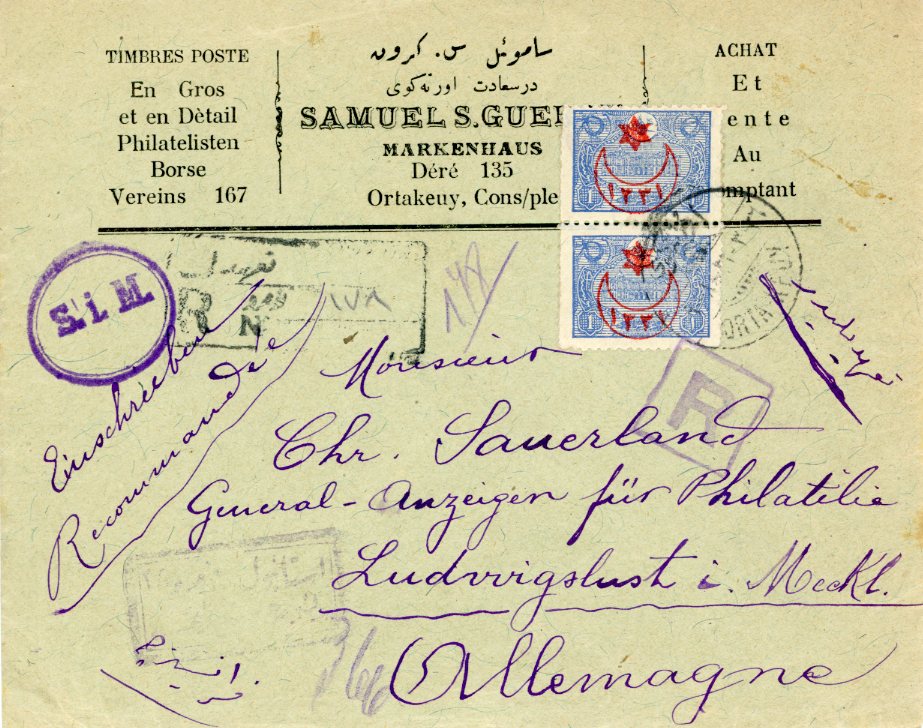 TIMBRES POSTE
En Gros
et en Dètail
Philatelisten
Borse
Vereins 167
ساموئل س. كرون
درسعادت اورته‌كوى
SAMUEL S.GUE
MARKENHAUS
Déré 135
Ortakeuy, Cons/ple
ACHAT
Et
ente
Au
mptant
١٣٣١
١٣٣١
S. i. M.
R
N
١٧٨
١٧٨
ORTA
R
Einschreiben
Recommandée
Monsieur
Chr. Sauerland
General-Anzeigen für Philatelie
Ludwigslust i. Meckl.
Allemagne